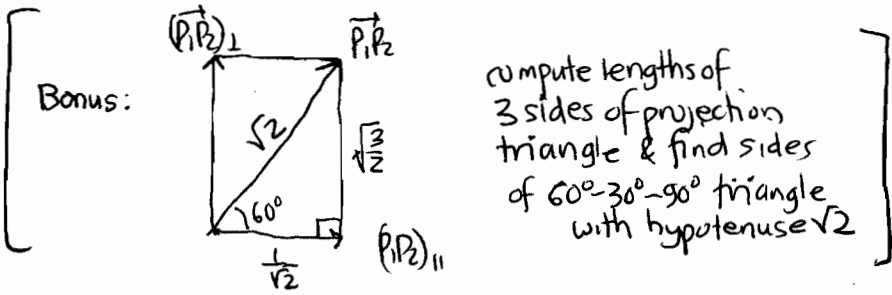 (P₁P₂)⊥
P₁P₂
Bonus:
√2
√3/2
60°
1/√2
(P₁P₂)||
compute lengths of
3 sides of projection
triangle & find sides
of 60°-30°-90° triangle
with hypotenuse √2